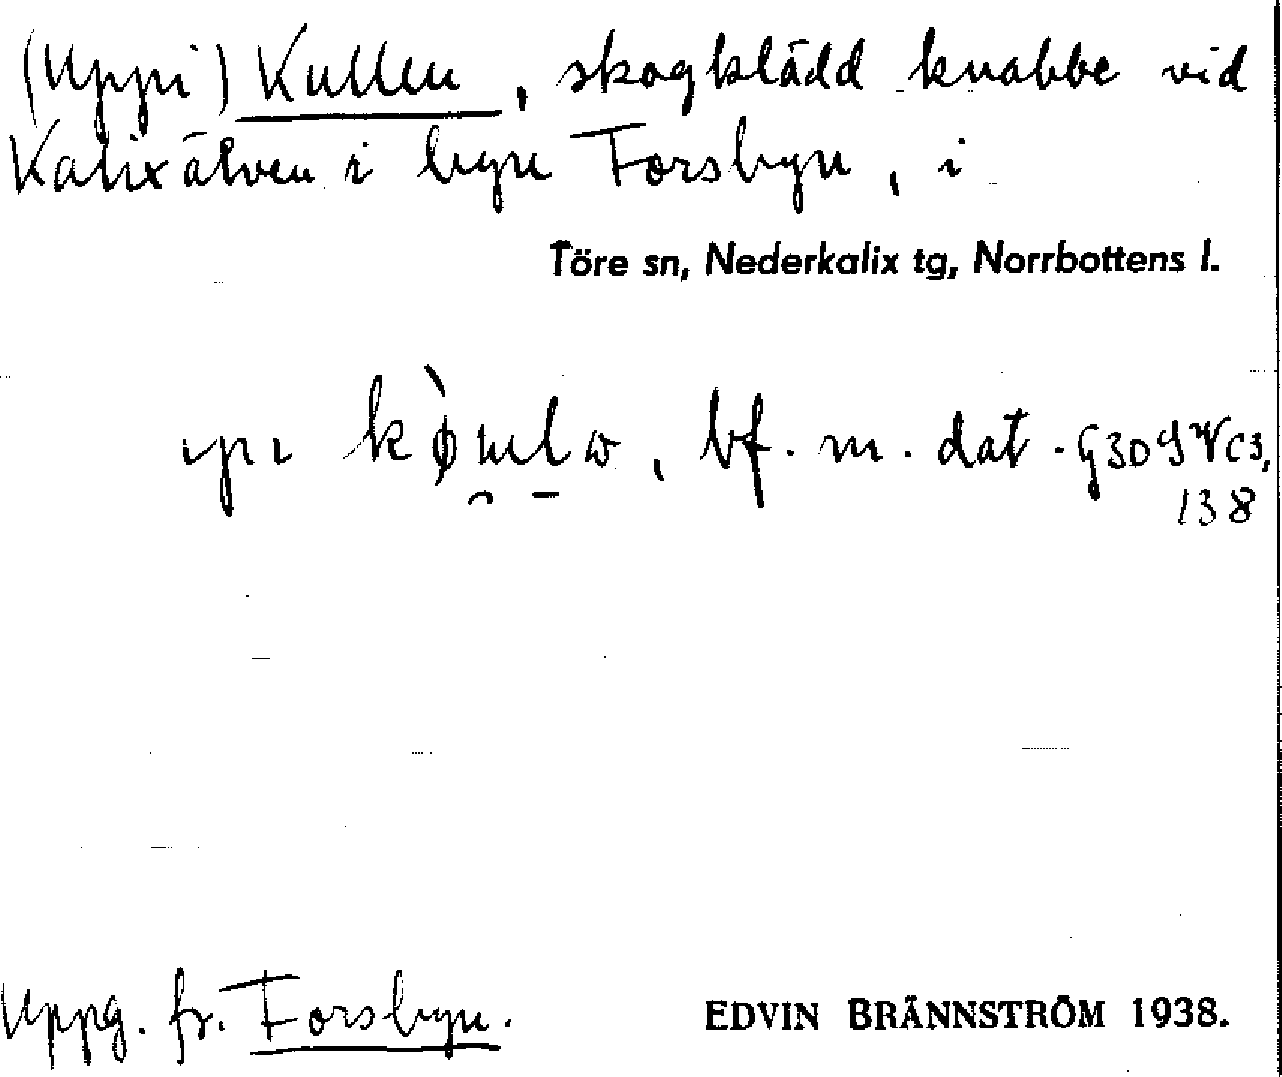 (Uppi) Kullen, skogklädd knabbe vid
Kalixälven i byn Forsbyn, i
Töre sn, Nederkalix tg, Norrbottens l.
bf. m. dat.
138
Uppg. fr. Forsbyn.
EDVIN BRÄNNSTRÖM 1938.